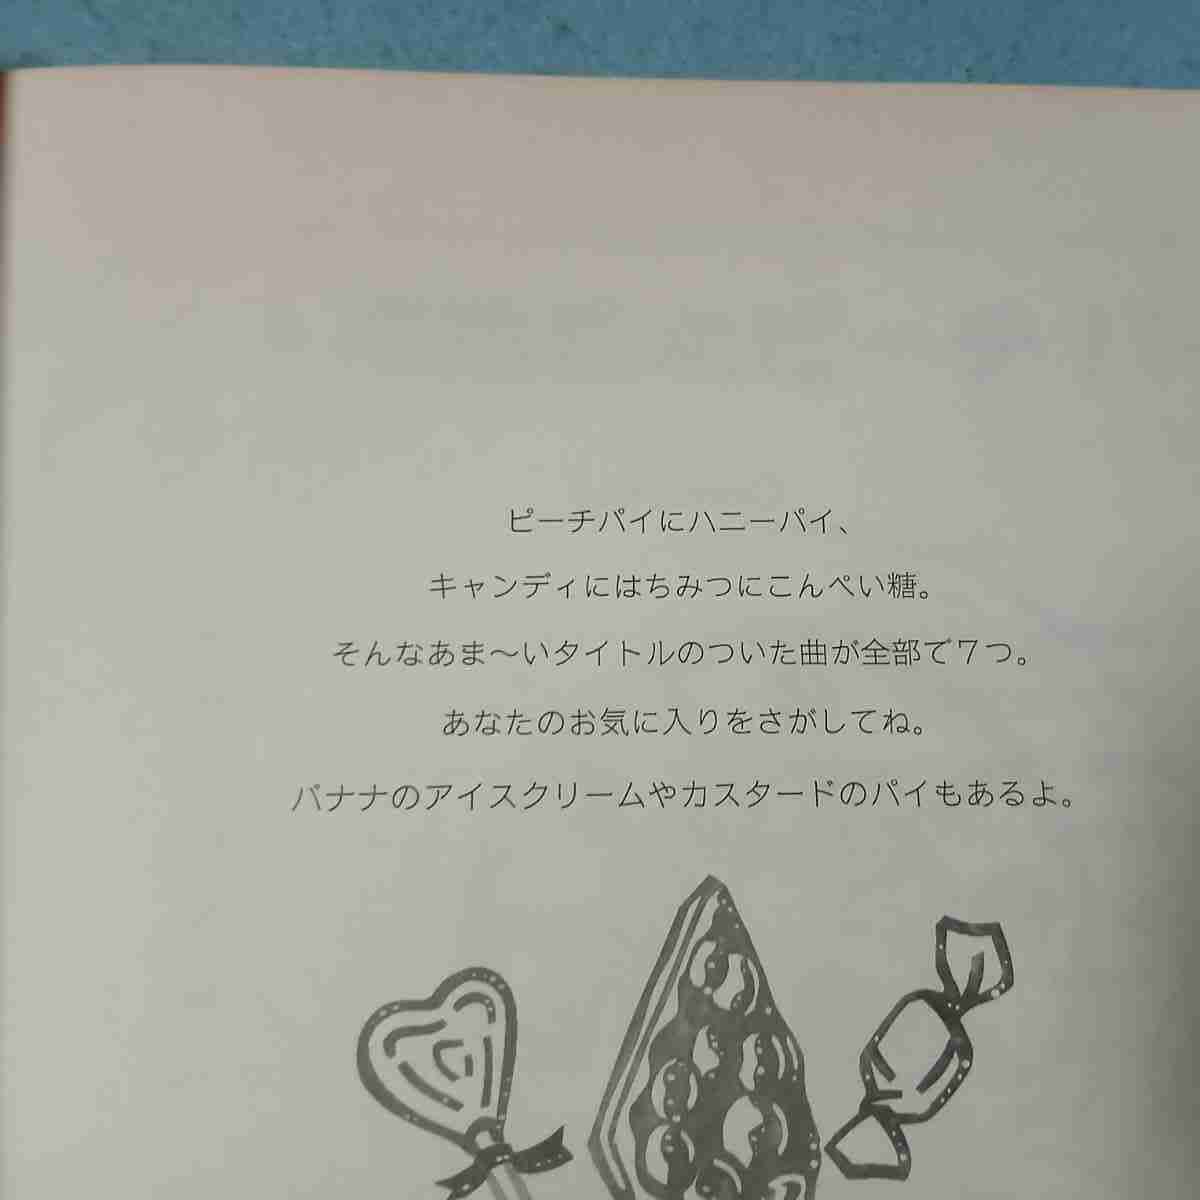 ピーチパイにハニーパイ、
キャンディにはちみつにこんぺい糖。
そんなあま〜いタイトルのついた曲が全部で７つ。
あなたのお気に入りをさがしてね。
バナナのアイスクリームやカスタードのパイもあるよ。